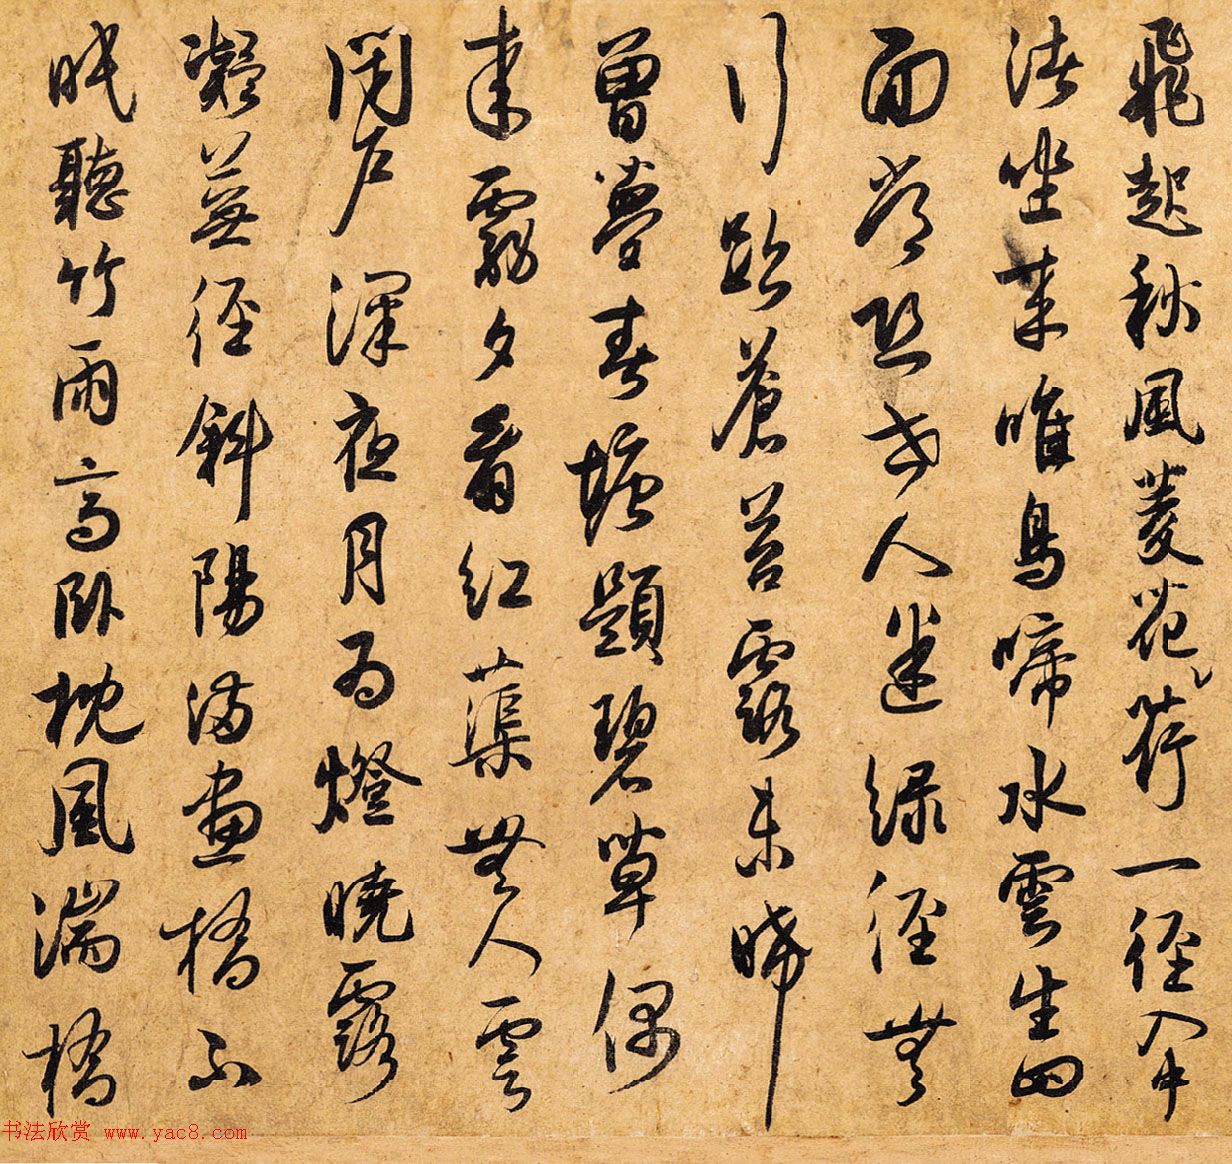 飛起秋風菱花荷一徑入中
渚坐來唯鳥啼水雲生四
面常恐世人迷綠徑無
行跡蒼苔露未晞
曾夢春塘題碧草偶
來霧夕看紅蕖無人雲
閉戶深夜月為燈曉露
凝蕪徑斜陽滿畫橋不
眠聽竹雨高臥枕風湍橋
书法欣赏 www.yac8.com